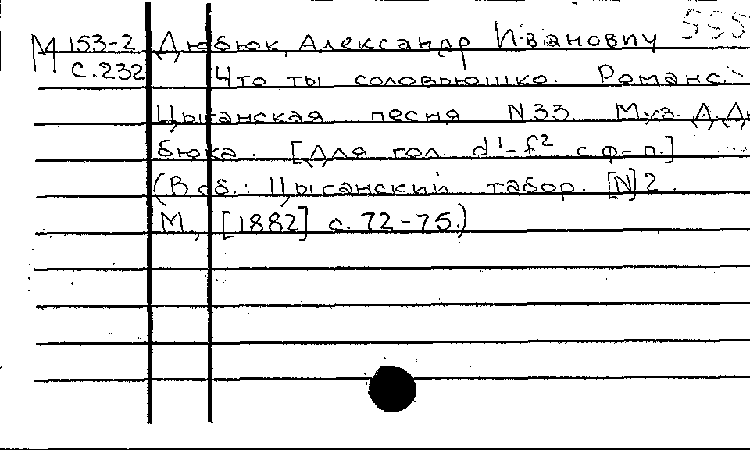 М 153-2 Дюбюк, Александр Иванович 555
с.232 Что ты соловьюшко. Романс.
Цыганская песня N33 Муз. А. Дю
бюка. [Для гол d¹-f² с ф-п.]
(В сб.: Цыганский табор. [N] 2.
М., [1882] с. 72-75.)